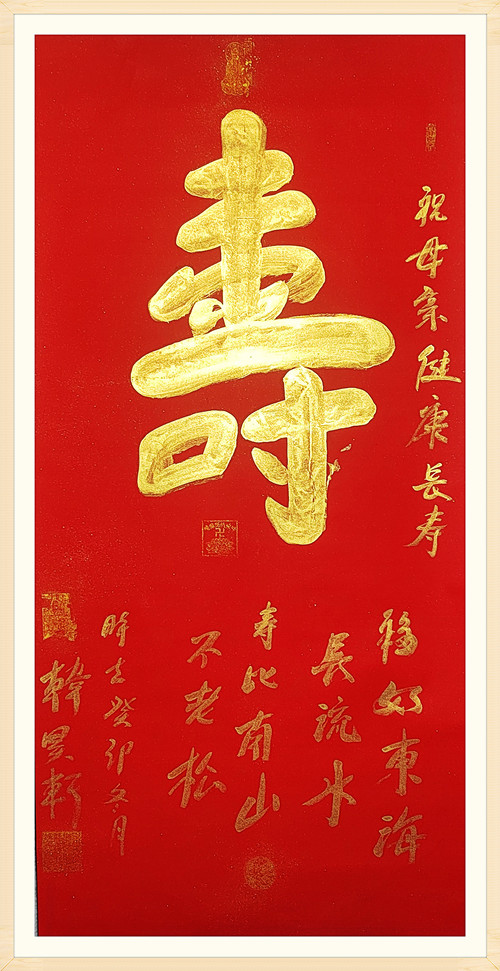 祝母亲健康長寿
壽
福如東海
長流水
寿比南山
不老松
時在癸卯冬月